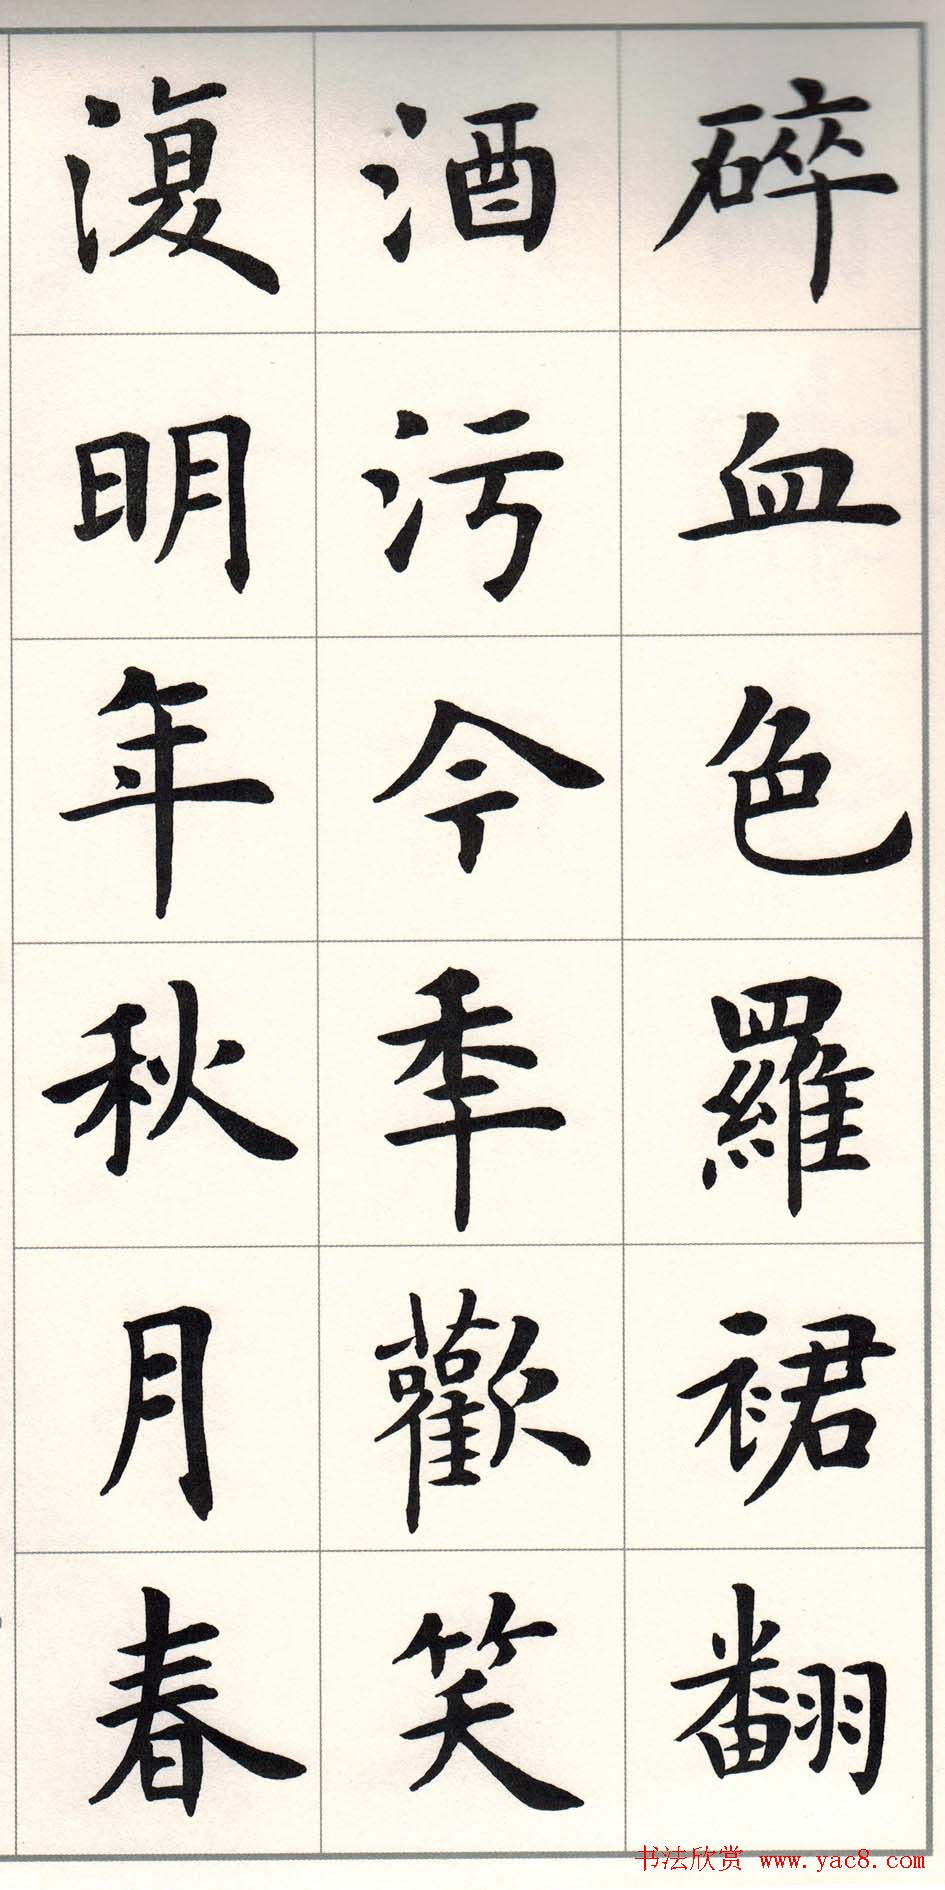 碎血色羅裙翻
酒污今秊歡笑
復明年秋月春
书法欣赏 www.yac8.com